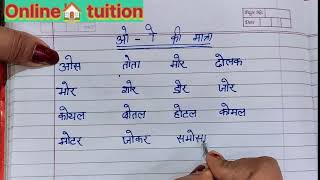 Online🏠 tuition
ओ - ो की मात्रा
ओस तोता मोर ढोलक
मोर शोर डोर जोर
कोयल बोतल होटल कोमल
मोटर जोकर समोसा